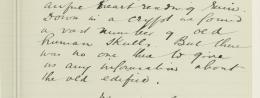 heart rending ruin.
Down in a crypt we found
a vast number of old
human skulls. But there
was no one here to give
us any information about
the old edifice.